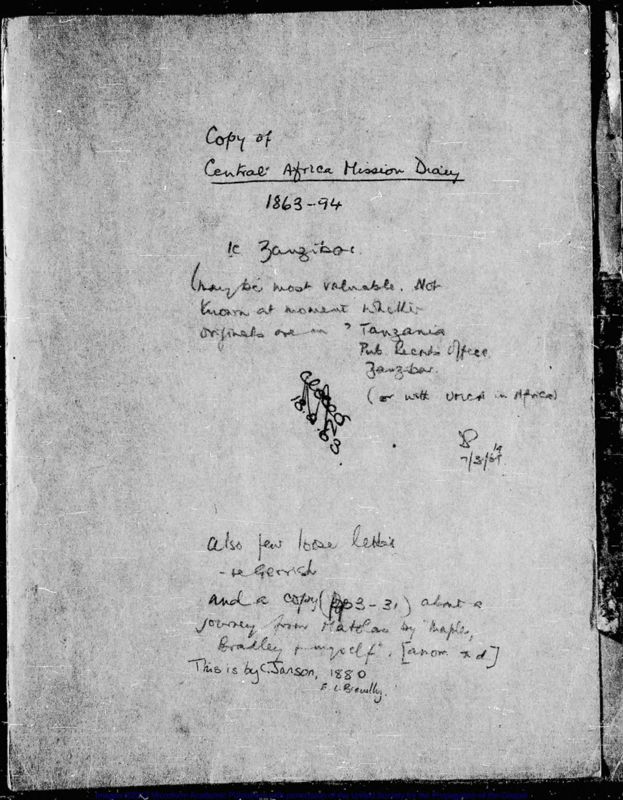 Copy of
Central Africa Mission Diary
1863-94
ie Zanzibar.
(may be most valuable. Not
known at moment whether
originals are in ? Tanzania
Pub. Records Office
Zanzibar.
(or with UMCA in Africa)
7/3/
also few loose letters
- re Gerrish
and a copy (pp 3-31) about a
journey from by "Maples,
Bradley & myself". [anon & d]
This is by C. Janson, 1880